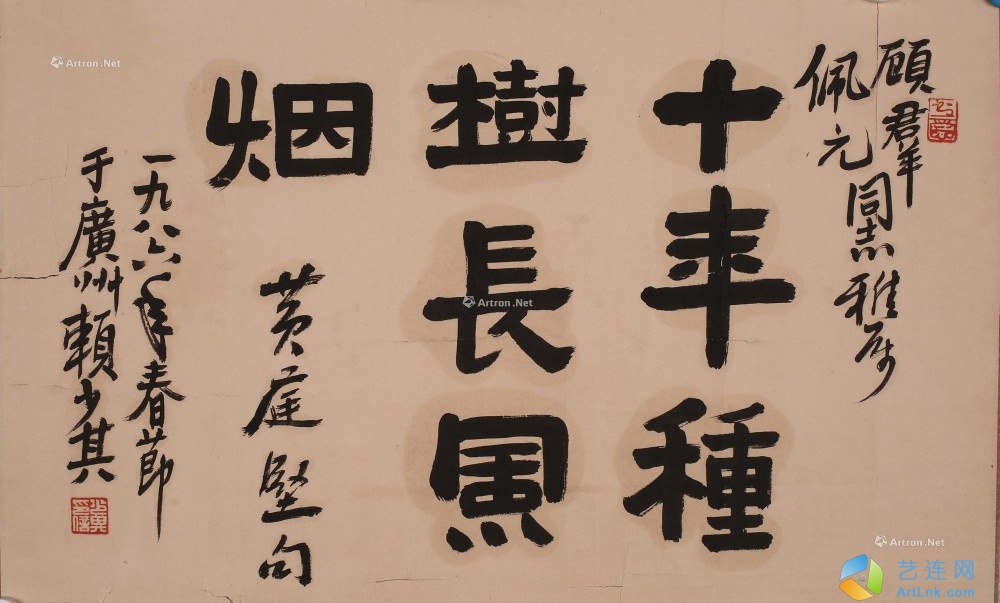 顾羣
佩元同志雅属
十年種
樹長風
烟
黄庭堅句
一九八六年春節
于廣州賴少其
Artron.Net
Artron.Net
Artron.Net
艺连网
ArtLnk.com